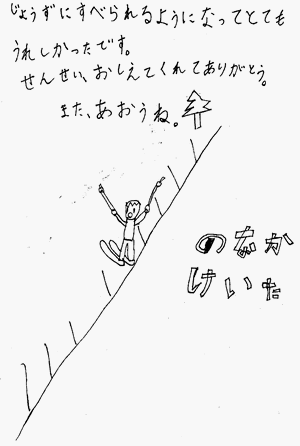 じょうずにすべられるようになってとても
うれしかったです。
せんせい、おしえてくれてありがとう。
また、あおうね。
のなか
けいた